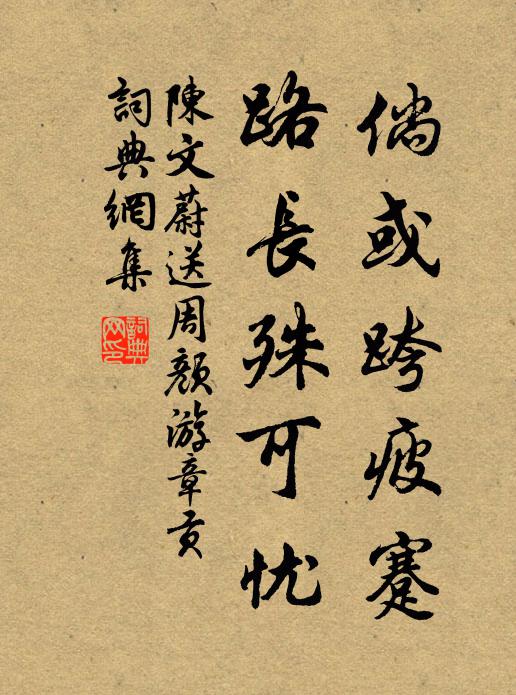 倘或跨疲蹇
路長殊可忧
陳文蔚送周顏游章贡
詞典網集
詞典网印